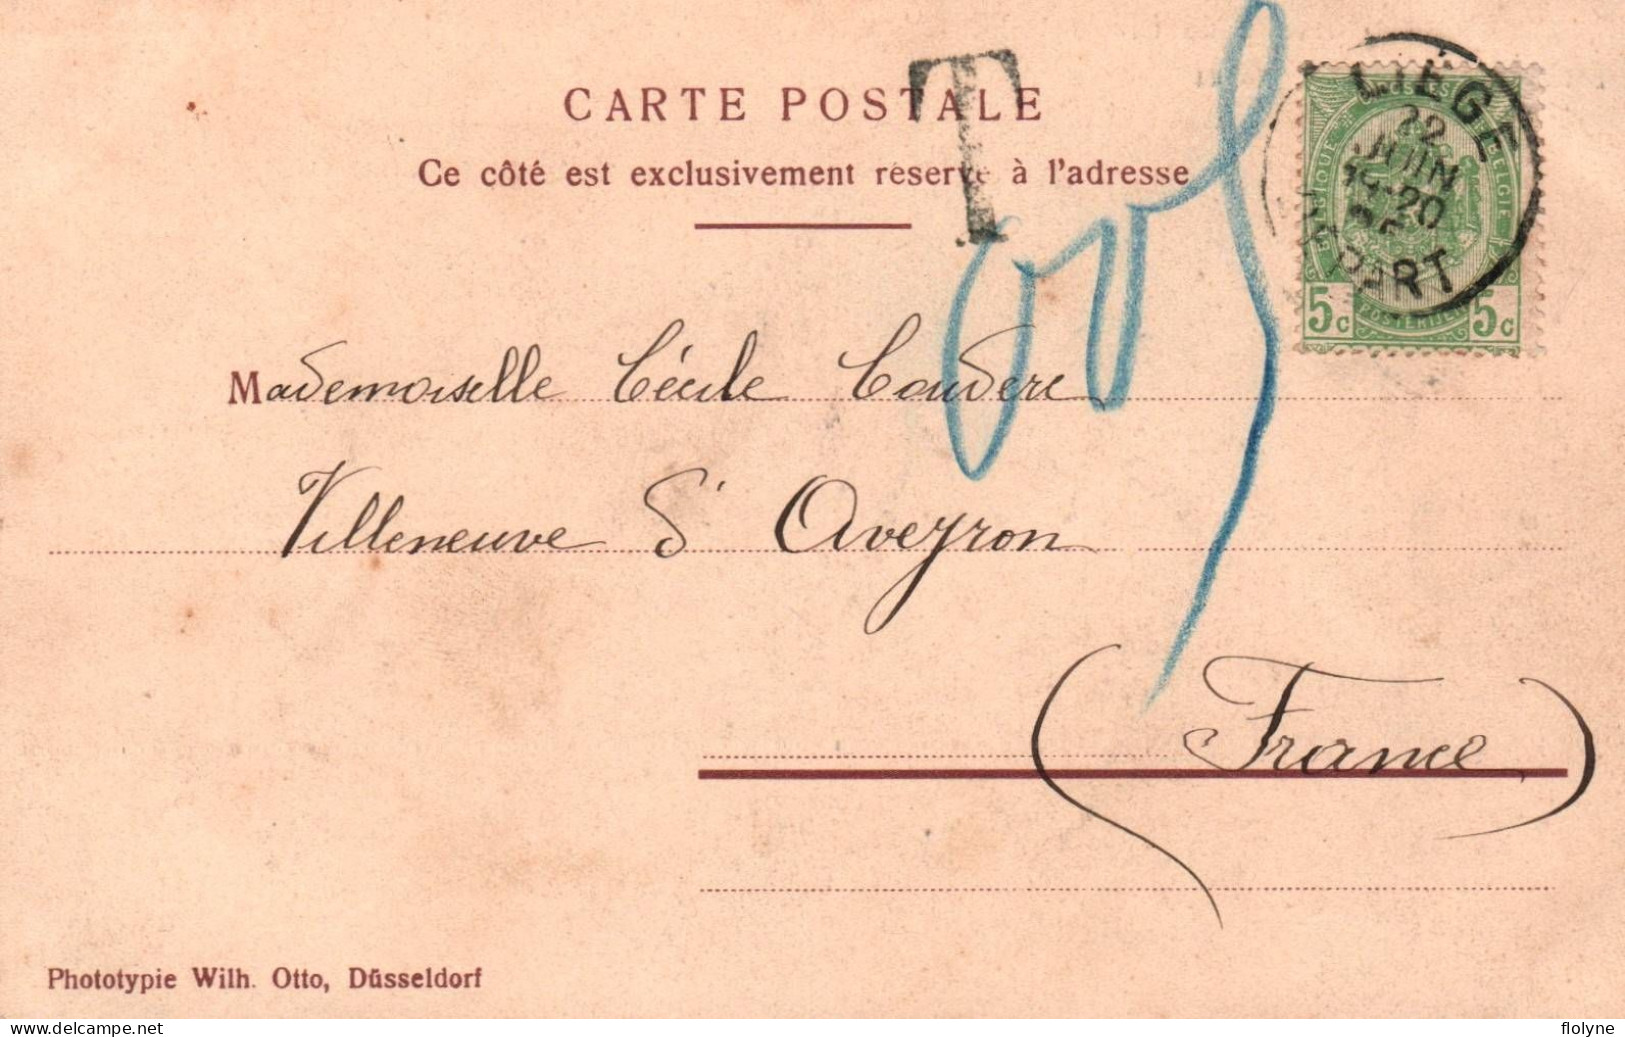 T
CARTE POSTALE
Ce côté est exclusivement réservé à l'adresse
LIÈGE
22
JUIN
BELGIE
5c POSTERIJEN 5c
Mademoiselle Cécile Couderc
Villeneuve d'Aveyron
(France)
Phototypie Wilh. Otto, Düsseldorf
www.delcampe.net
flolyne